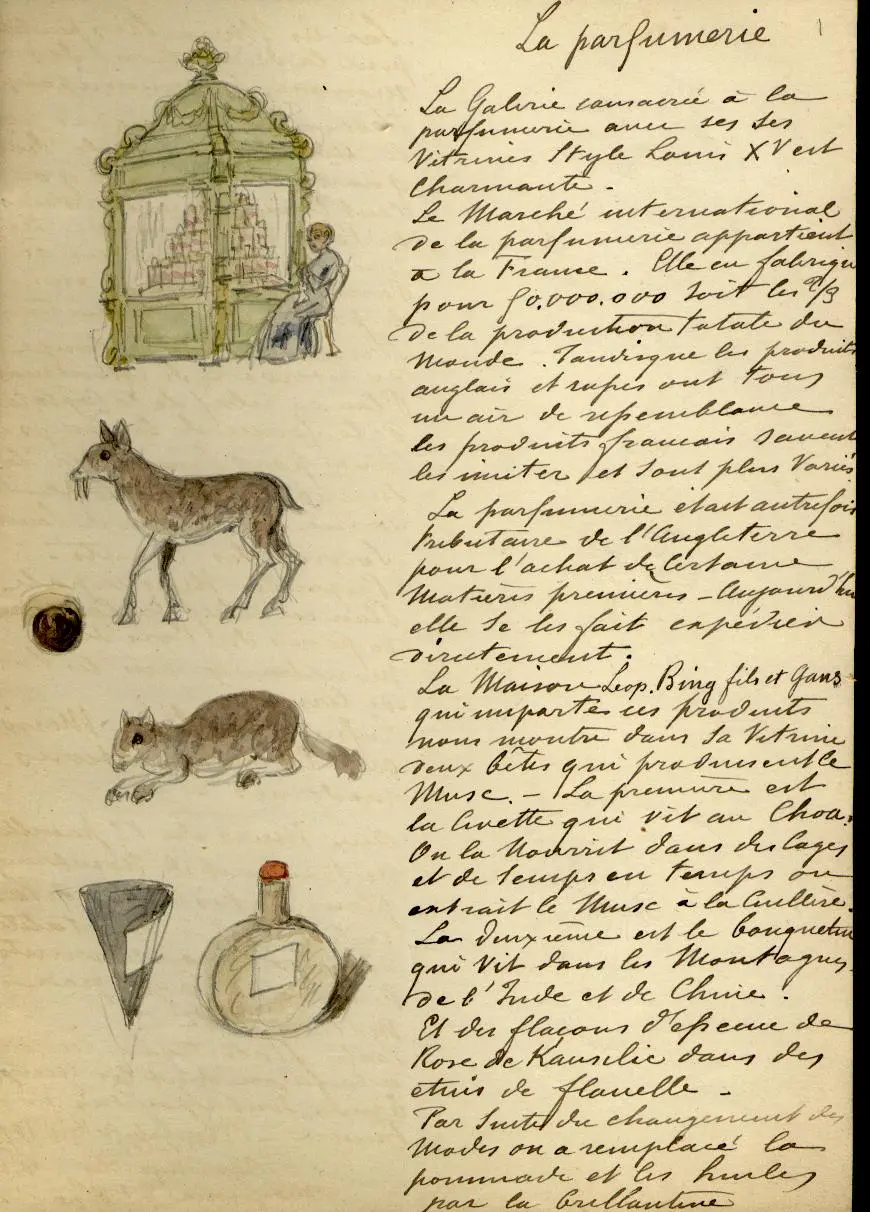 La parfumerie
1
La Galerie consacrée à la
parfumerie avec ses ses
Vitrines Style Louis XV est
Charmante.
Le Marché international
de la parfumerie appartient
à la France. Elle en fabrique
pour 90.000.000 soit les 2/3
de la production totale du
Monde. Tandisque les produits
anglais et rufses ont tous
un air de ressemblance
les produits francais savent
les imiter et sont plus Variés
La parfumerie était autrefois
tributaire de l'Angleterre
pour l'achat de Certaine
Matières premières - Aujourd'hui
elle se les fait expédier
directement.
La Maison Leop. Bing fils et Gans
qui importe ces produits
nous montre dans sa Vitrine
deux bêtes qui produisent le
Musc. - La première est
la Civette qui vit au Choa.
On la Nourrit dans des Cages
et de temps en temps on
extrait le Musc à la Cuillère.
La deuxième est le bouquetin
qui Vit dans les Montagnes
de l'Inde et de Chine.
Et des flacons d'essence de
Rose de dans des
etuis de flanelle -
Par Suite du changement des
Modes on a remplacé la
pommade et les huiles
par la brillantine